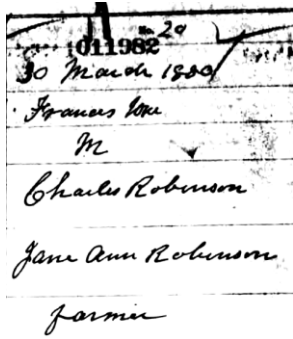 20
011982
30 March 1880
Frances
M
Charles Robinson
Jane Ann Robinson
farmer